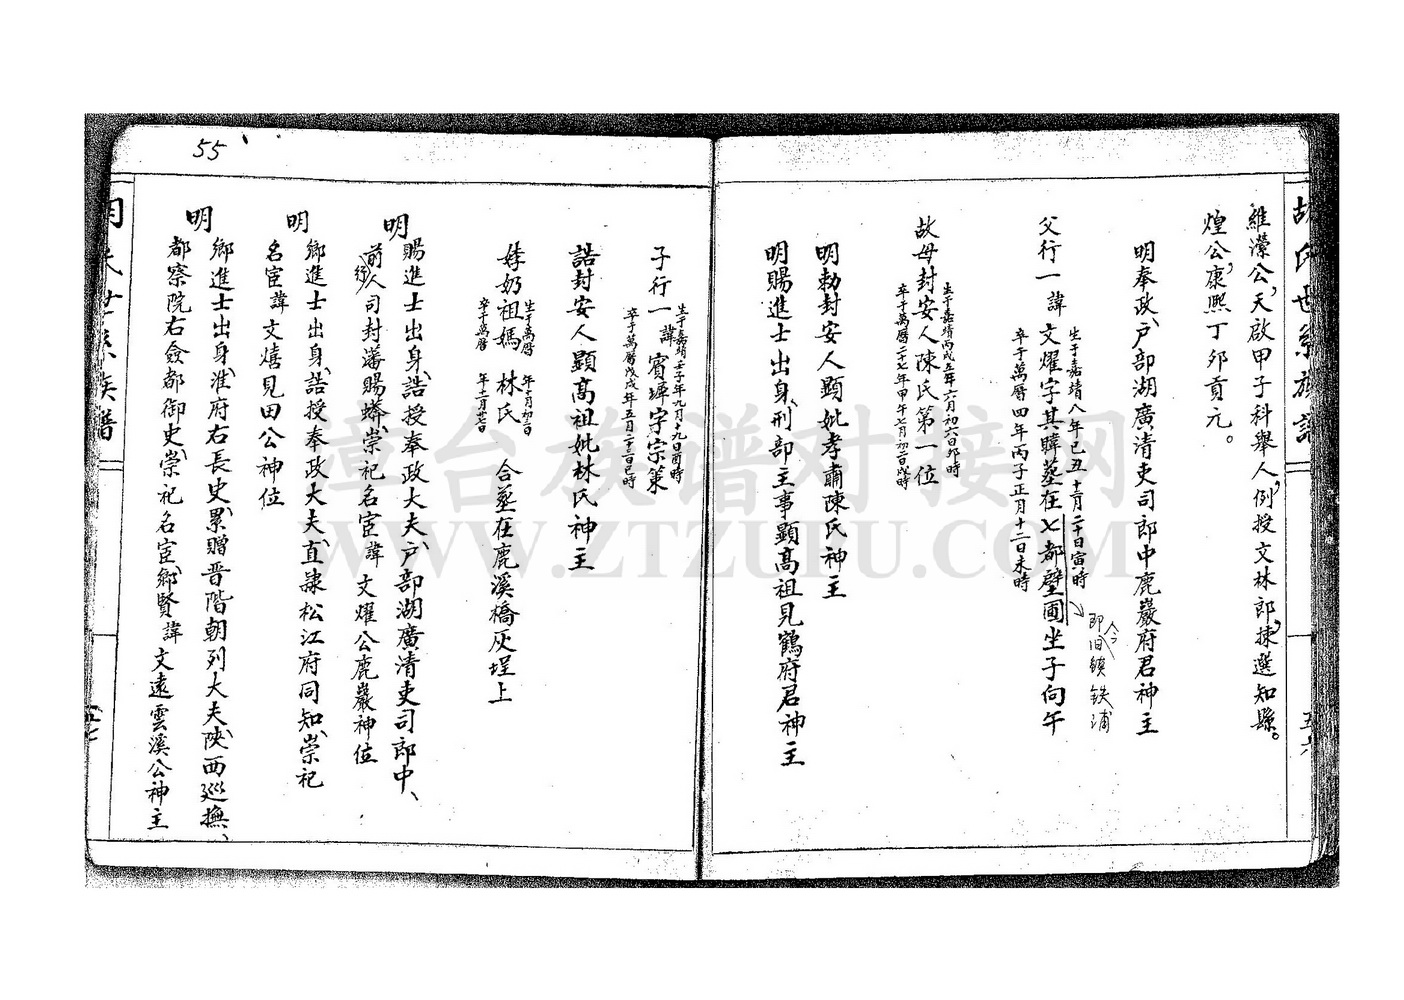 維濚公、天啟甲子科舉人、例授文林郎、揀選知縣。
煌公、康熙丁卯貢元。
明奉政、戶部湖廣清吏司郎中鹿巖府君神主
生于嘉靖八年己丑十月二十日寅時
父行一諱文燿字其暐塟在七都壁圃坐子向午
即今旧鎮鉄浦
卒于萬曆四年丙子正月十三日未時
生于嘉靖丙戌五年六月初六日卯時
故母封安人陳氏第一位
卒于萬曆二十七年甲午七月初二日戌時
明勅封安人顯妣孝肅陳氏神主
明賜進士出身、刑部主事顯高祖見鶴府君神主
五六
55
生于嘉靖壬子年九月十九日酉時
子行一諱賓墀字宗策
卒于萬曆戊戌年五月二十三日巳時
誥封安人顯高祖妣林氏神主
生于萬曆 年十月初三日
妦奶祖媽 林氏 合塟在鹿溪橋灰埕上
卒于萬曆 年十二月廿日
明賜進士出身、誥授奉政大夫、戶部湖廣清吏司郎中、
前行人司封藩賜蟒、崇祀名宦諱文燿公鹿巖神位
明鄉進士出身、誥授奉政大夫、直隸松江府同知、崇祀
名宦諱文熺見田公神位
明鄉進士出身、淮府右長史、累贈晋階朝列大夫、陝西巡撫、
都察院右僉都御史、崇祀名宦、鄉賢諱文遠雲溪公神主
五七
章台族谱对接网
WWW.ZTZUPU.COM